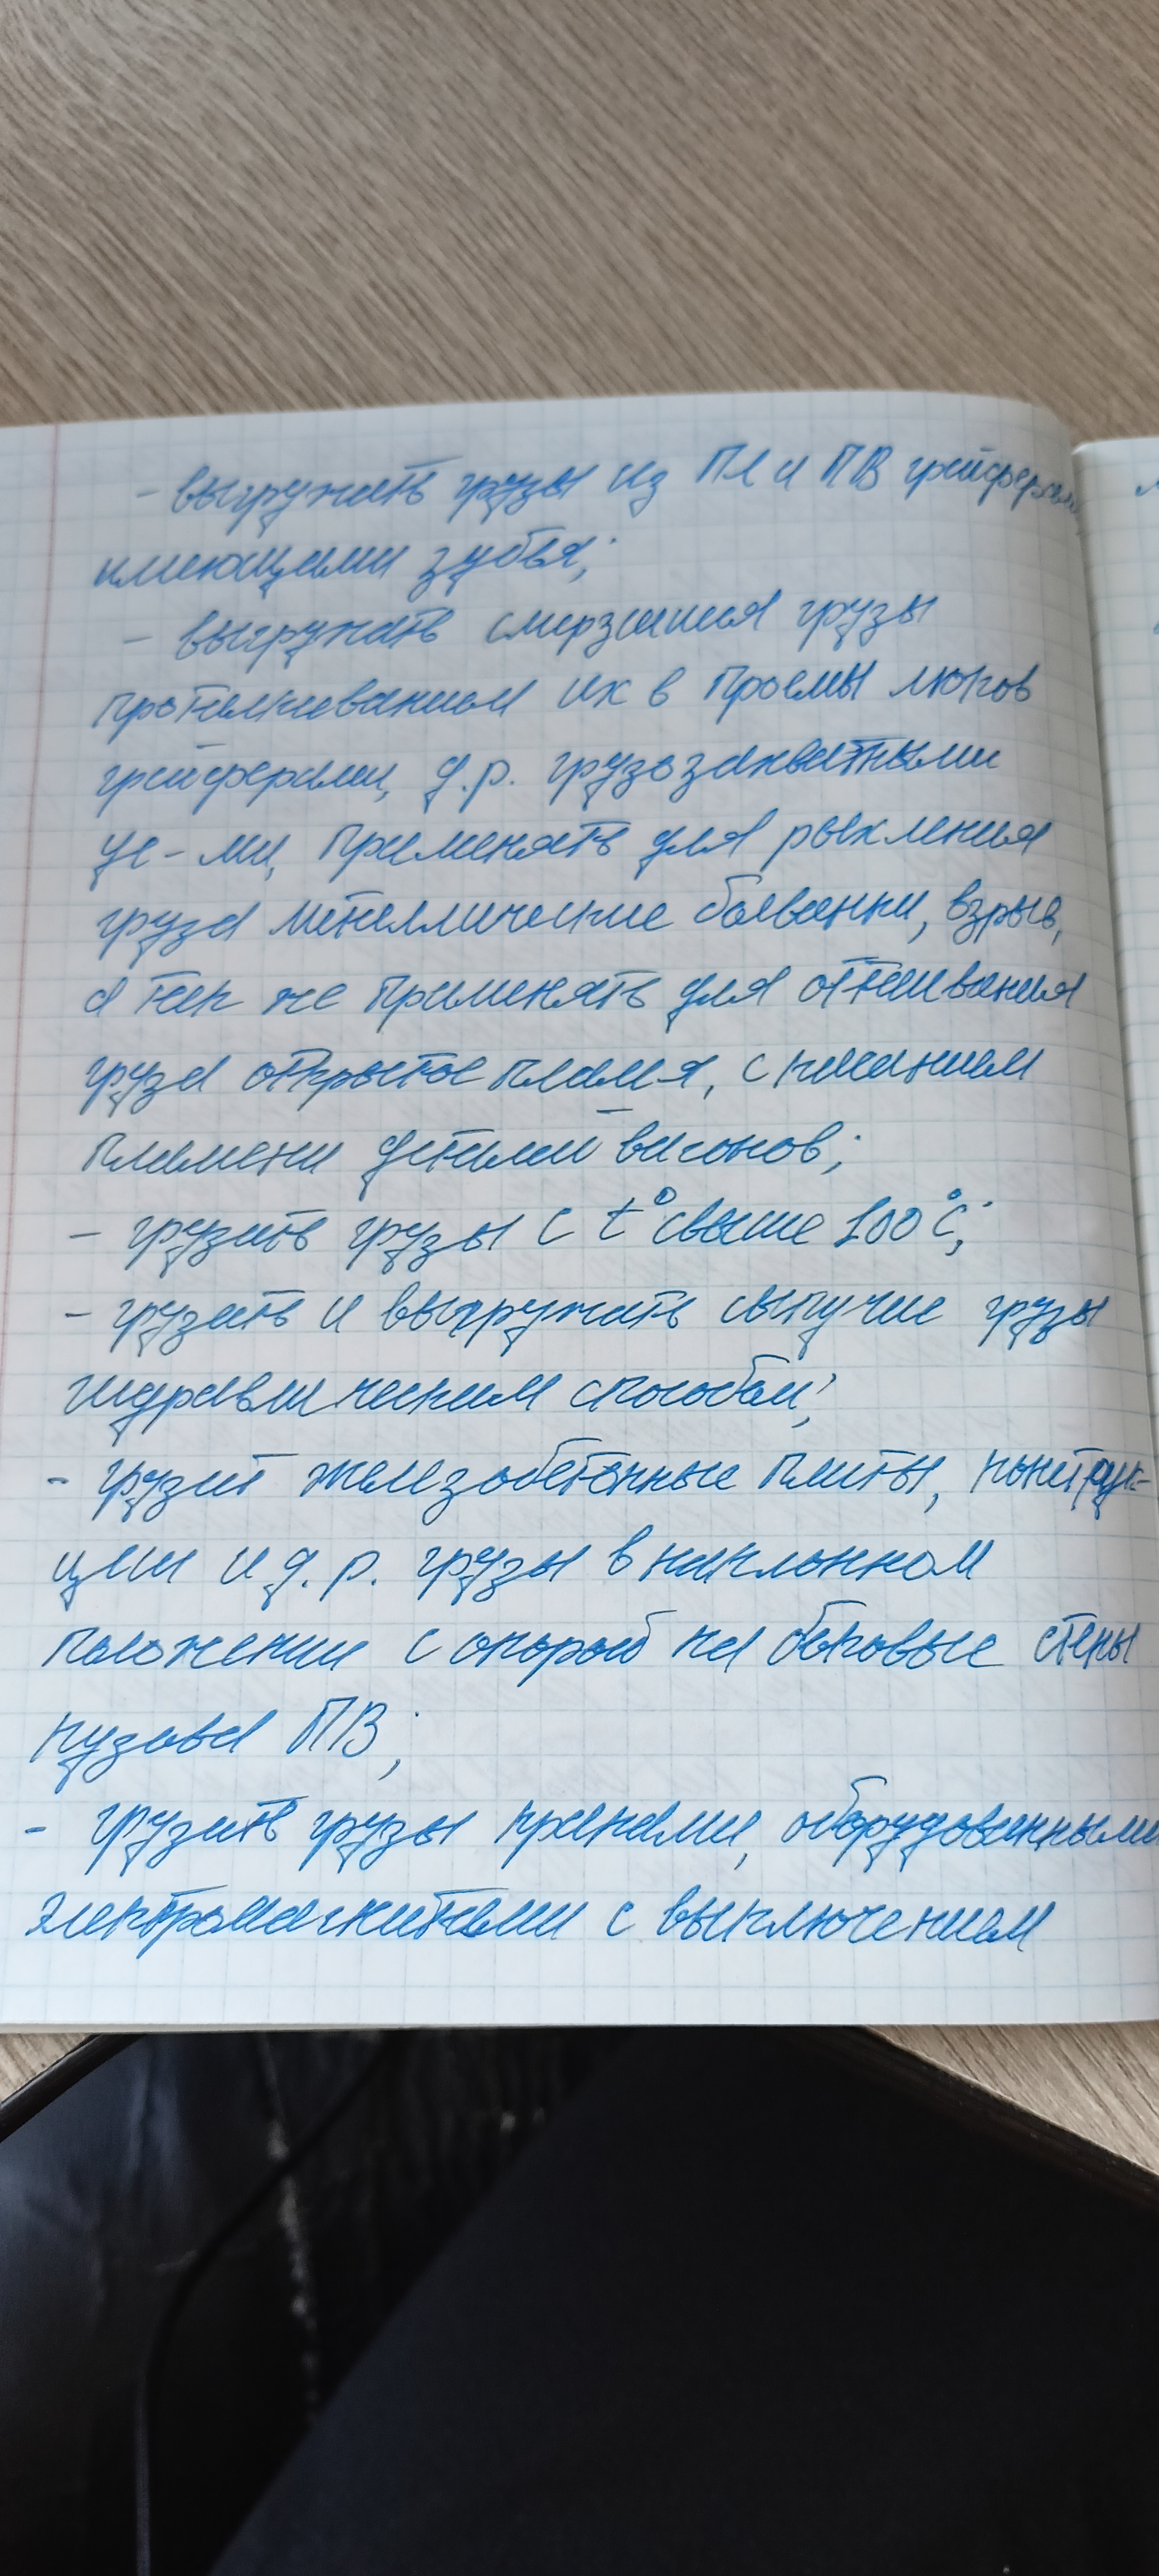 - выгружать грузы из ПЛ и ПВ грейферами,
имеющими зубья;
- выгружать смерзшиеся грузы
проталкиванием их в проемы люков
грейферами, д.р. грузозахватными
ус-ми, применять для рыхления
груза металлические болванки, взрыв,
а так же применять для оттаивания
груза открытое пламя, с касанием
пламени деталей вагонов;
- грузить грузы с t° свыше 100°С;
- грузить и выгружать сыпучие грузы
гидравлическим способом;
- грузит железобетонные плиты, конструк-
ции и д.р. грузы в наклонном
положении с опорой на боковые стены
кузова ПВ;
- грузить грузы кранами, оборудованными
электромагнитами с выключением